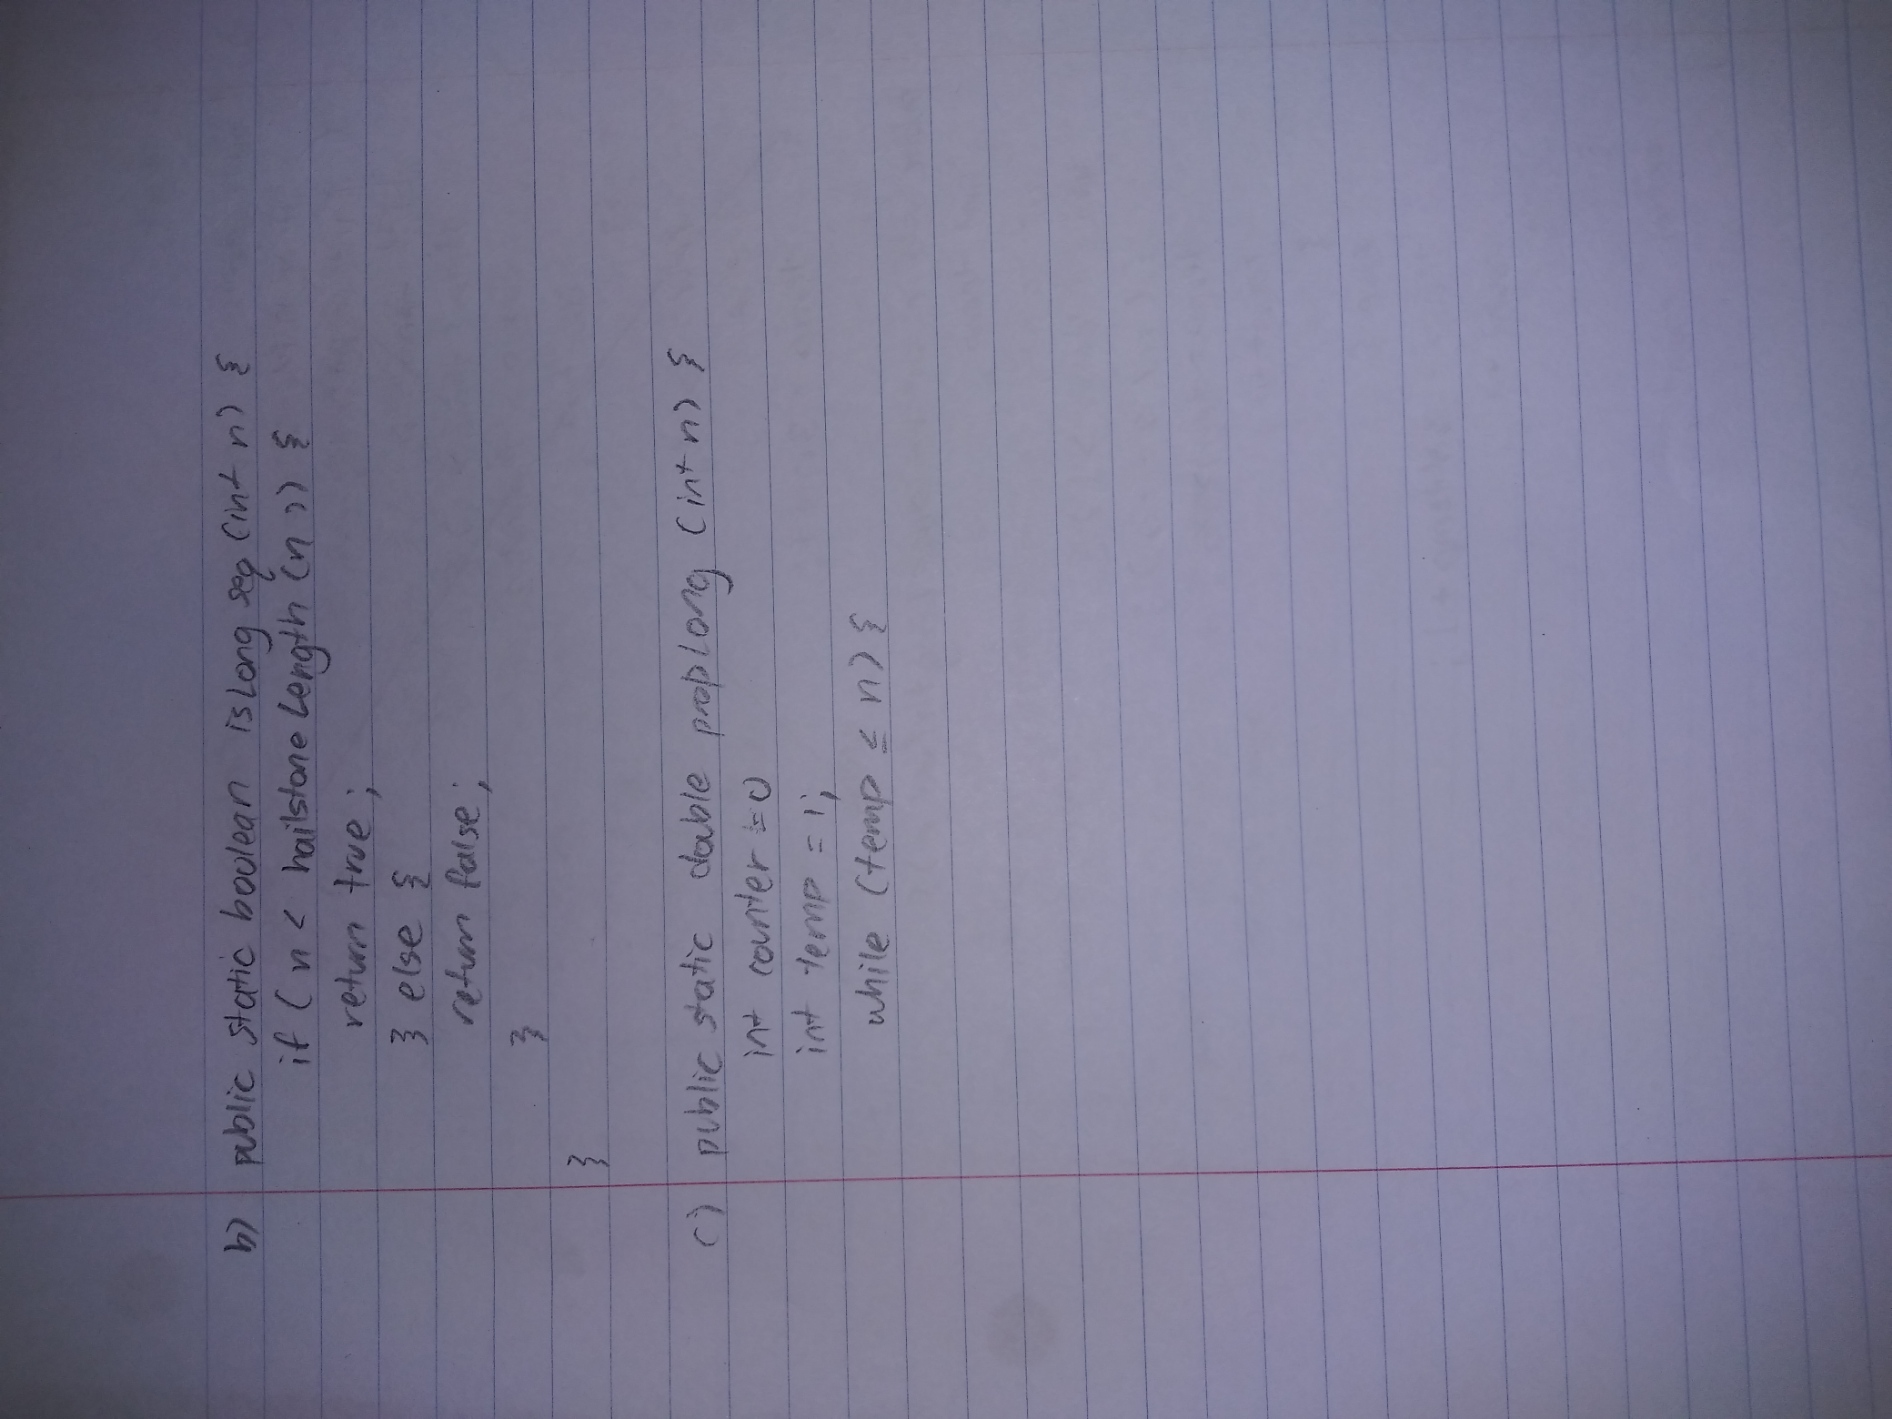 b) public static boolean isLong seq (int n) {
if ( n < hailstone Length (n)) {
return true;
} else {
return false;
}
}
c) public static double propLong (int n) {
int counter = 0
int temp = 1;
while (temp ≤ n) {